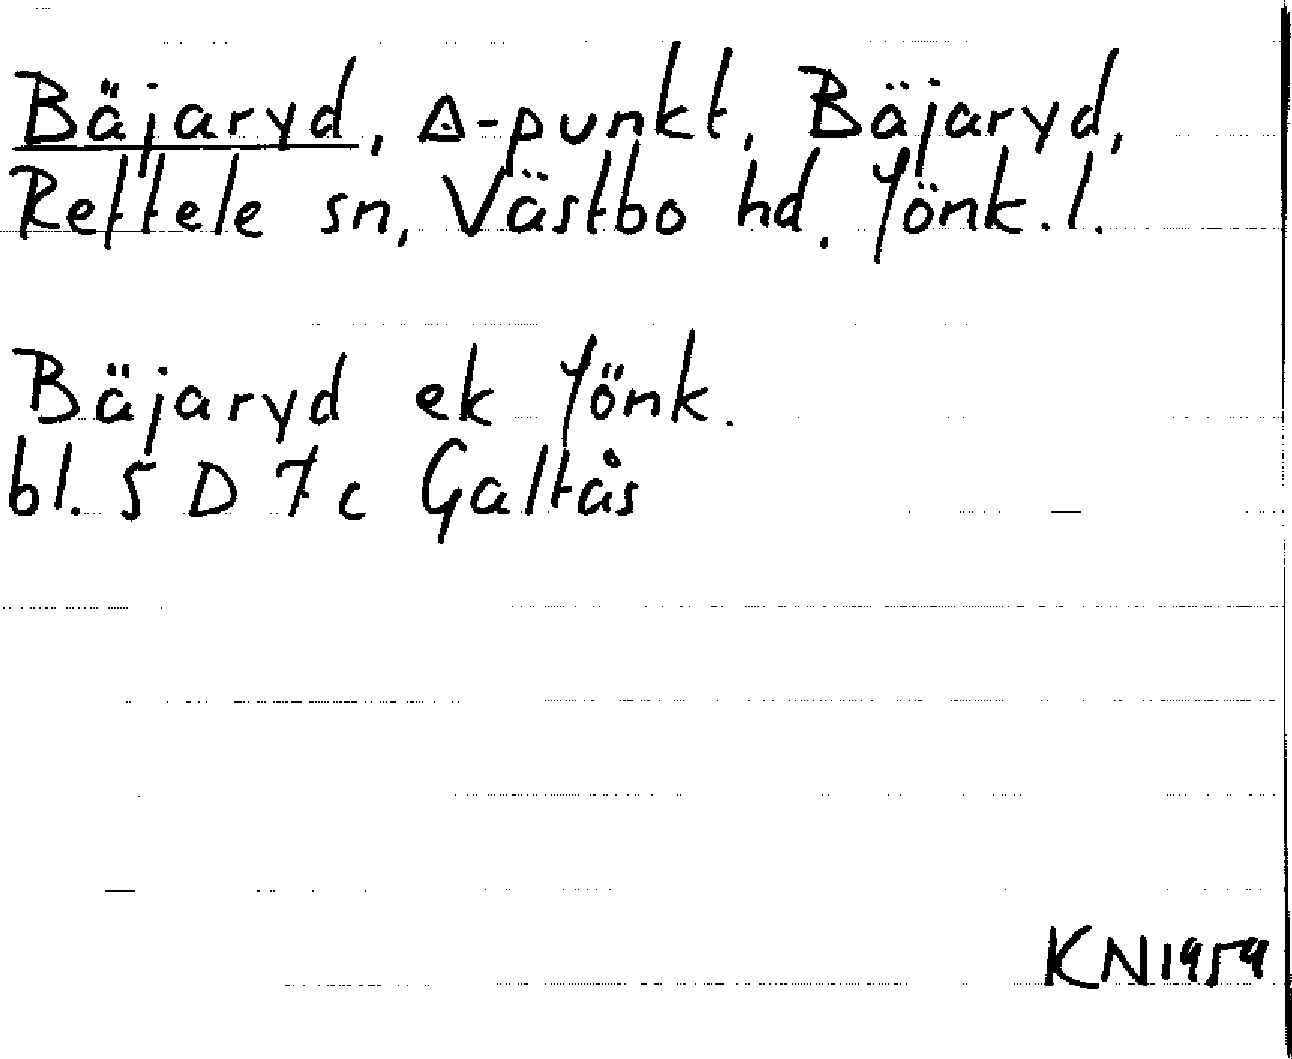 Bäjaryd, △-punkt, Bäjaryd,
Reftele sn, Västbo hd. Jönk. l.
Bäjaryd ek Jönk.
bl. 5 D 7 c Galtås
KN1959